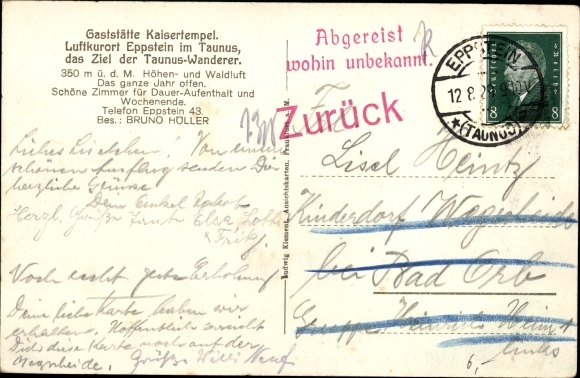 Gaststätte Kaisertempel.
Luftkurort Eppstein im Taunus,
das Ziel der Taunus-Wanderer.
350 m ü. d. M. Höhen- und Waldluft
Das ganze Jahr offen.
Schöne Zimmer für Dauer-Aufenthalt und
Wochenende.
Telefon Eppstein 43.
Bes.: BRUNO HÖLLER
Liebes Lieselchen! Von einem
schönen Ausflug senden Dir
herzliche Grüsse
Dein Onkel
Herzl. Grüße Tante Else
Fritz.
Noch recht gute Erholung
Deine liebe Karte haben wir
erhalten. Hoffentlich erreicht
Dich diese Karte noch auf der
Wegscheide. Grüße Willi
Ludwig Klement, Ansichtskarten, Frankfurt a. M.
Abgereist
wohin unbekannt.
Zurück
EPPSTEIN
12.8.29
(TAUNUS)
8 8
Lisel Heintz
Kinderdorf Wegscheide
bei
Bad Orb
Gruppe Heinrich
links
6,